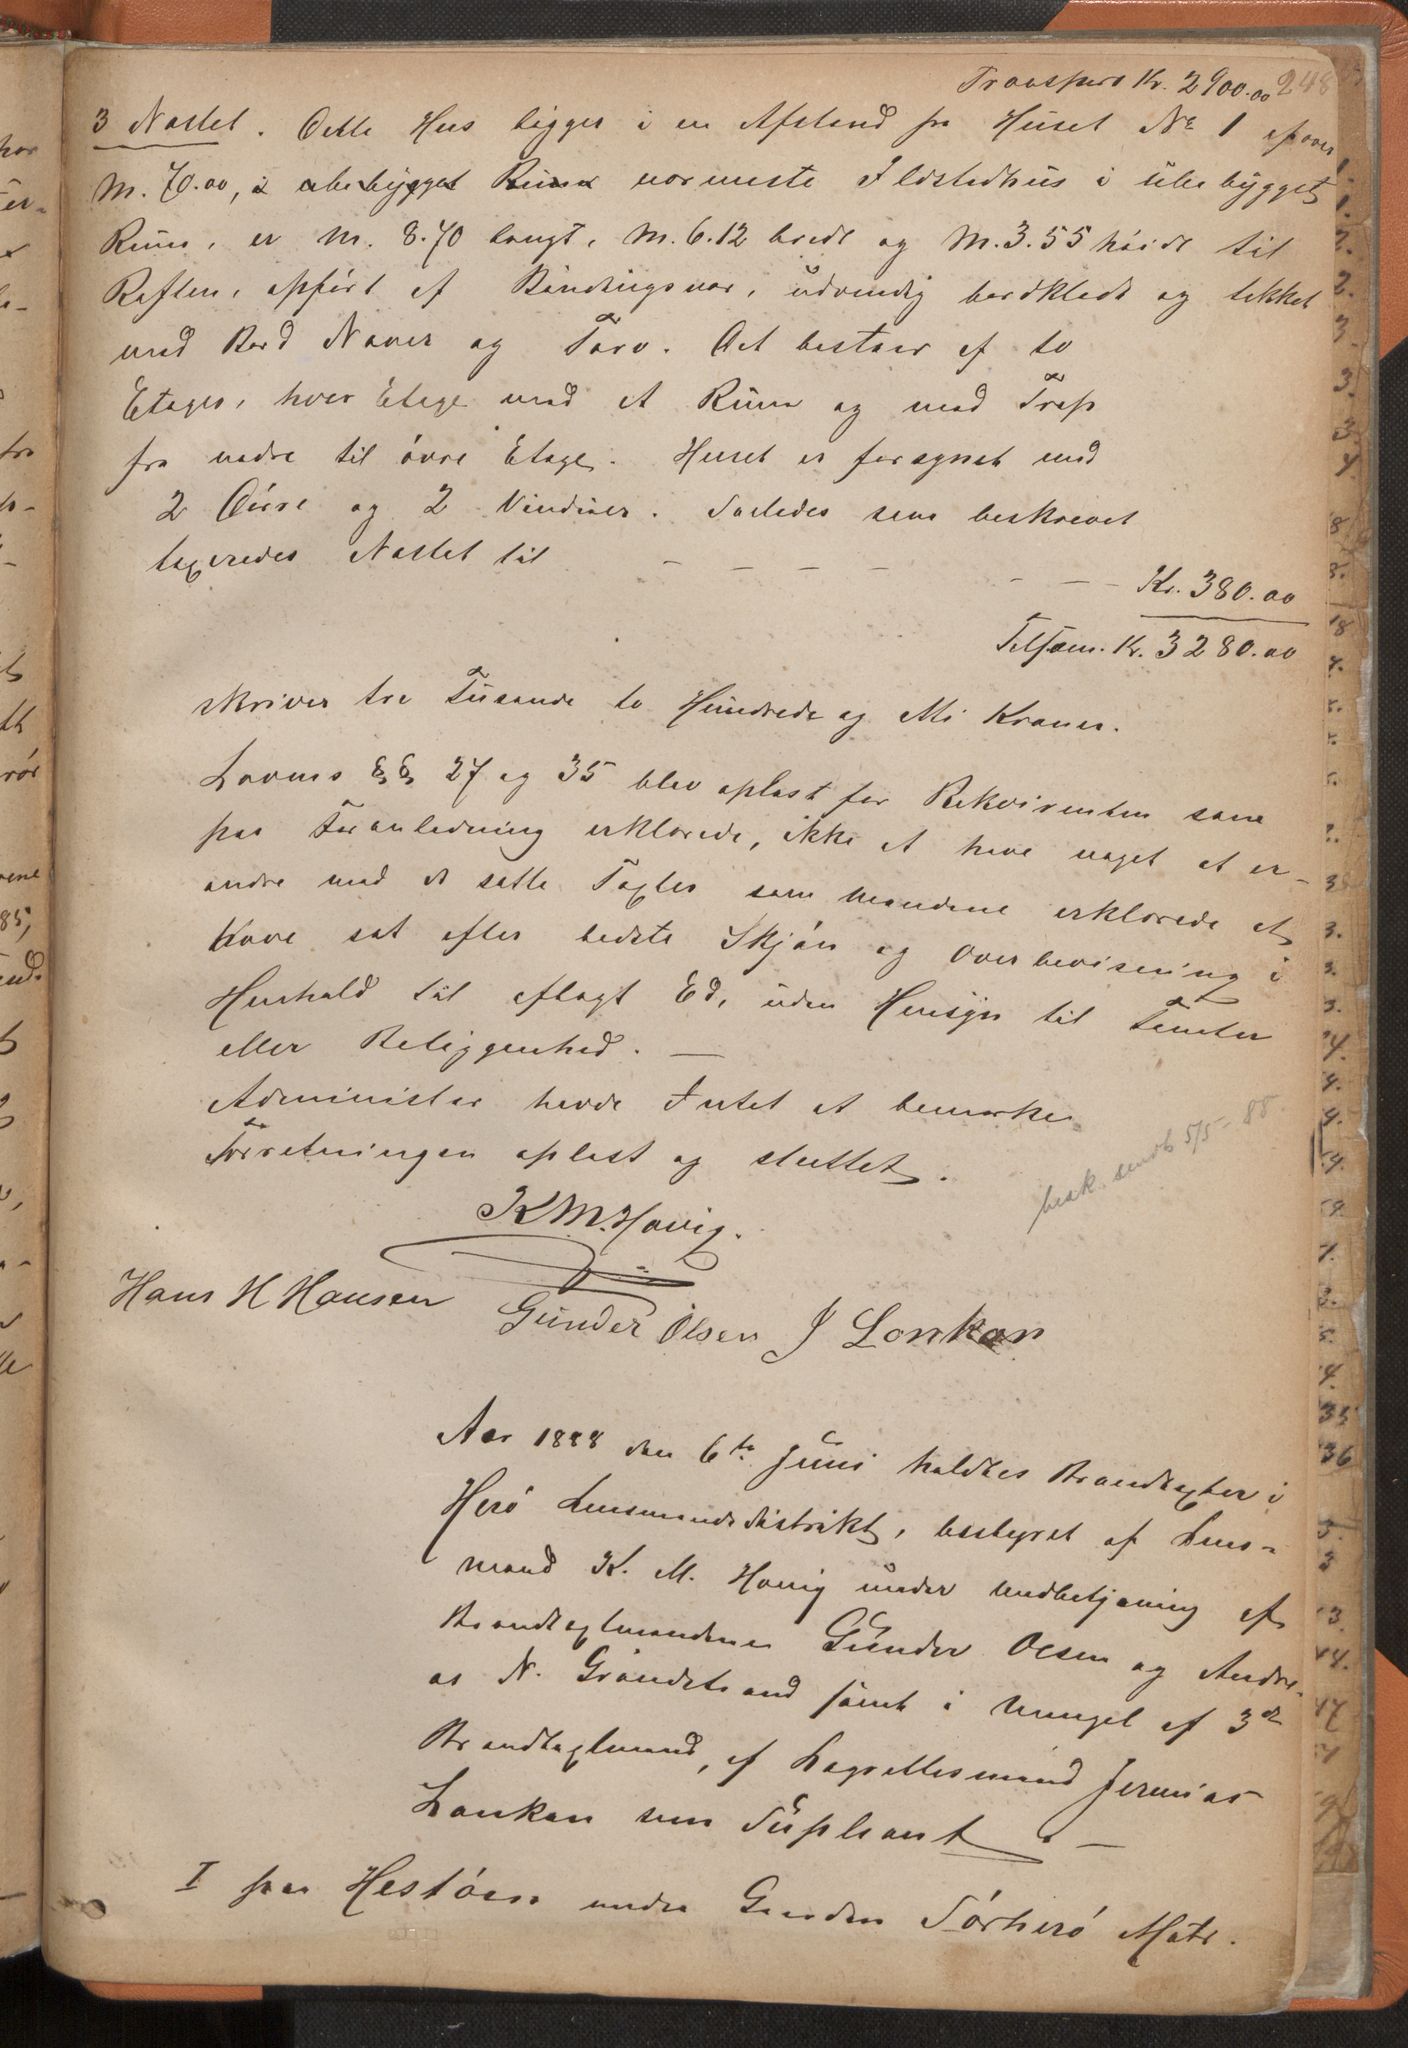 Transport Kr. 2900.00 248
3 Nostet. Dette Hus ligger i en Afstand fra Huset No 1 af over
M. 70.00, i ubebygget Rum nærmeste Ildstedhus i ubebygget
Rum, er M. 8.70 langt, M. 6.12 bredt og M. 3.55 höidt til
Raften, opfört af Bindingsver, udvendig bordklædt og tækket
med Bord Næver og Torv. Det bestaar af to
Etager, hver Etage med et Rum og med Trap
fra nedre til övre Etage. Huset er forsynet med
2 Dörre og 2 Vinduer. Saaledes som beskrevet
taxeredes Nostet til - - - - - - - Kr. 380.00
Tilsam. Kr. 3280.00
skriver tre Tusande to Hundrede og Otti Kroner.
Lovens §§ 27 og 35 blev oplæst for Rekvirenten som
paa Foranledning erklærede, ikke at have noget at er-
indre mod de satte Taxter som Mændene erklærede at
have sat efter bedste Skjön og Overbevisning i
Henhold til aflagt Ed, uden Hensyn til Tomter
eller Beliggenhed. —
Administer havde Intet at bemærke
Forretningen oplæst og sluttet.
besk. sendt 5/5-88
K M. Hovig.
Hans H Hansen Gunder Olsen J Lonkan
Aar 1888 den 6te Juni holdtes Brandtaxter i
Herö Lensmandsdistrikt, bestyret af Lens-
mand K. M. Hovig under Medbetjening af
Brandtaxtmændene Gunder Olsen og Andre-
as N. Gröndstrand samt i Mangel af 3de
Brandtaxtmand, af Lagrettesmand Jeremias
Lonkan som Supleant. —
I paa Hestöen under Gaarden Sörherö Matr.